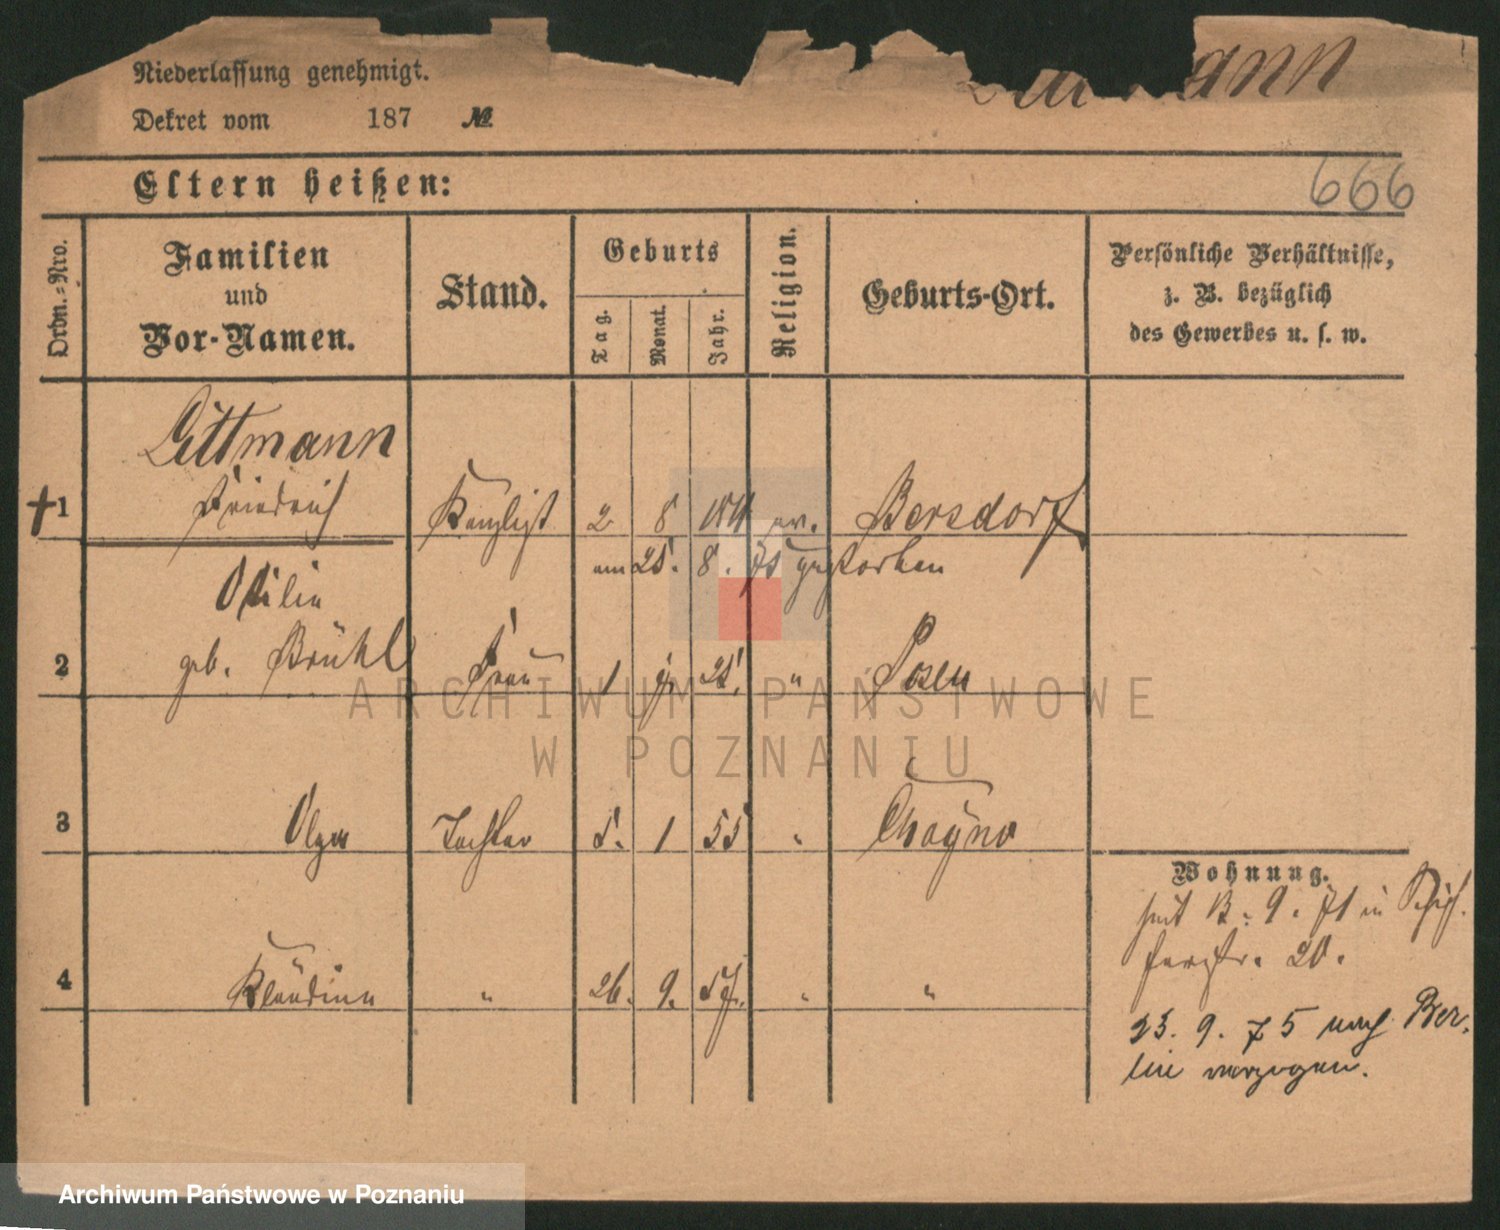 Niederlassung genehmigt.
Dekret vom 187 №
Eltern heißen:
666
Ordn.-Nro.
Familien
und
Vor-Namen.
Stand.
Geburts
Tag.
Monat.
Jahr.
Religion.
Geburts-Ort.
Persönliche Verhältnisse,
z. B. bezüglich
des Gewerbes u. s. w.
Littmann
†1 Friedrich Kanzlist 2 8 ev. Bersdorf
am 25. 8. 75 gestorben
Otilie
2 geb. Brühl Frau 1 " Posen
3 Olga Tochter 5. 1 55 "
4 Klaudine " 26. 9. 57. " "
Wohnung.
seit 9. 71 in
20.
23. 9. 75 nach Ber-
lin verzogen.
ARCHIWUM PAŃSTWOWE
W POZNANIU
Archiwum Państwowe w Poznaniu